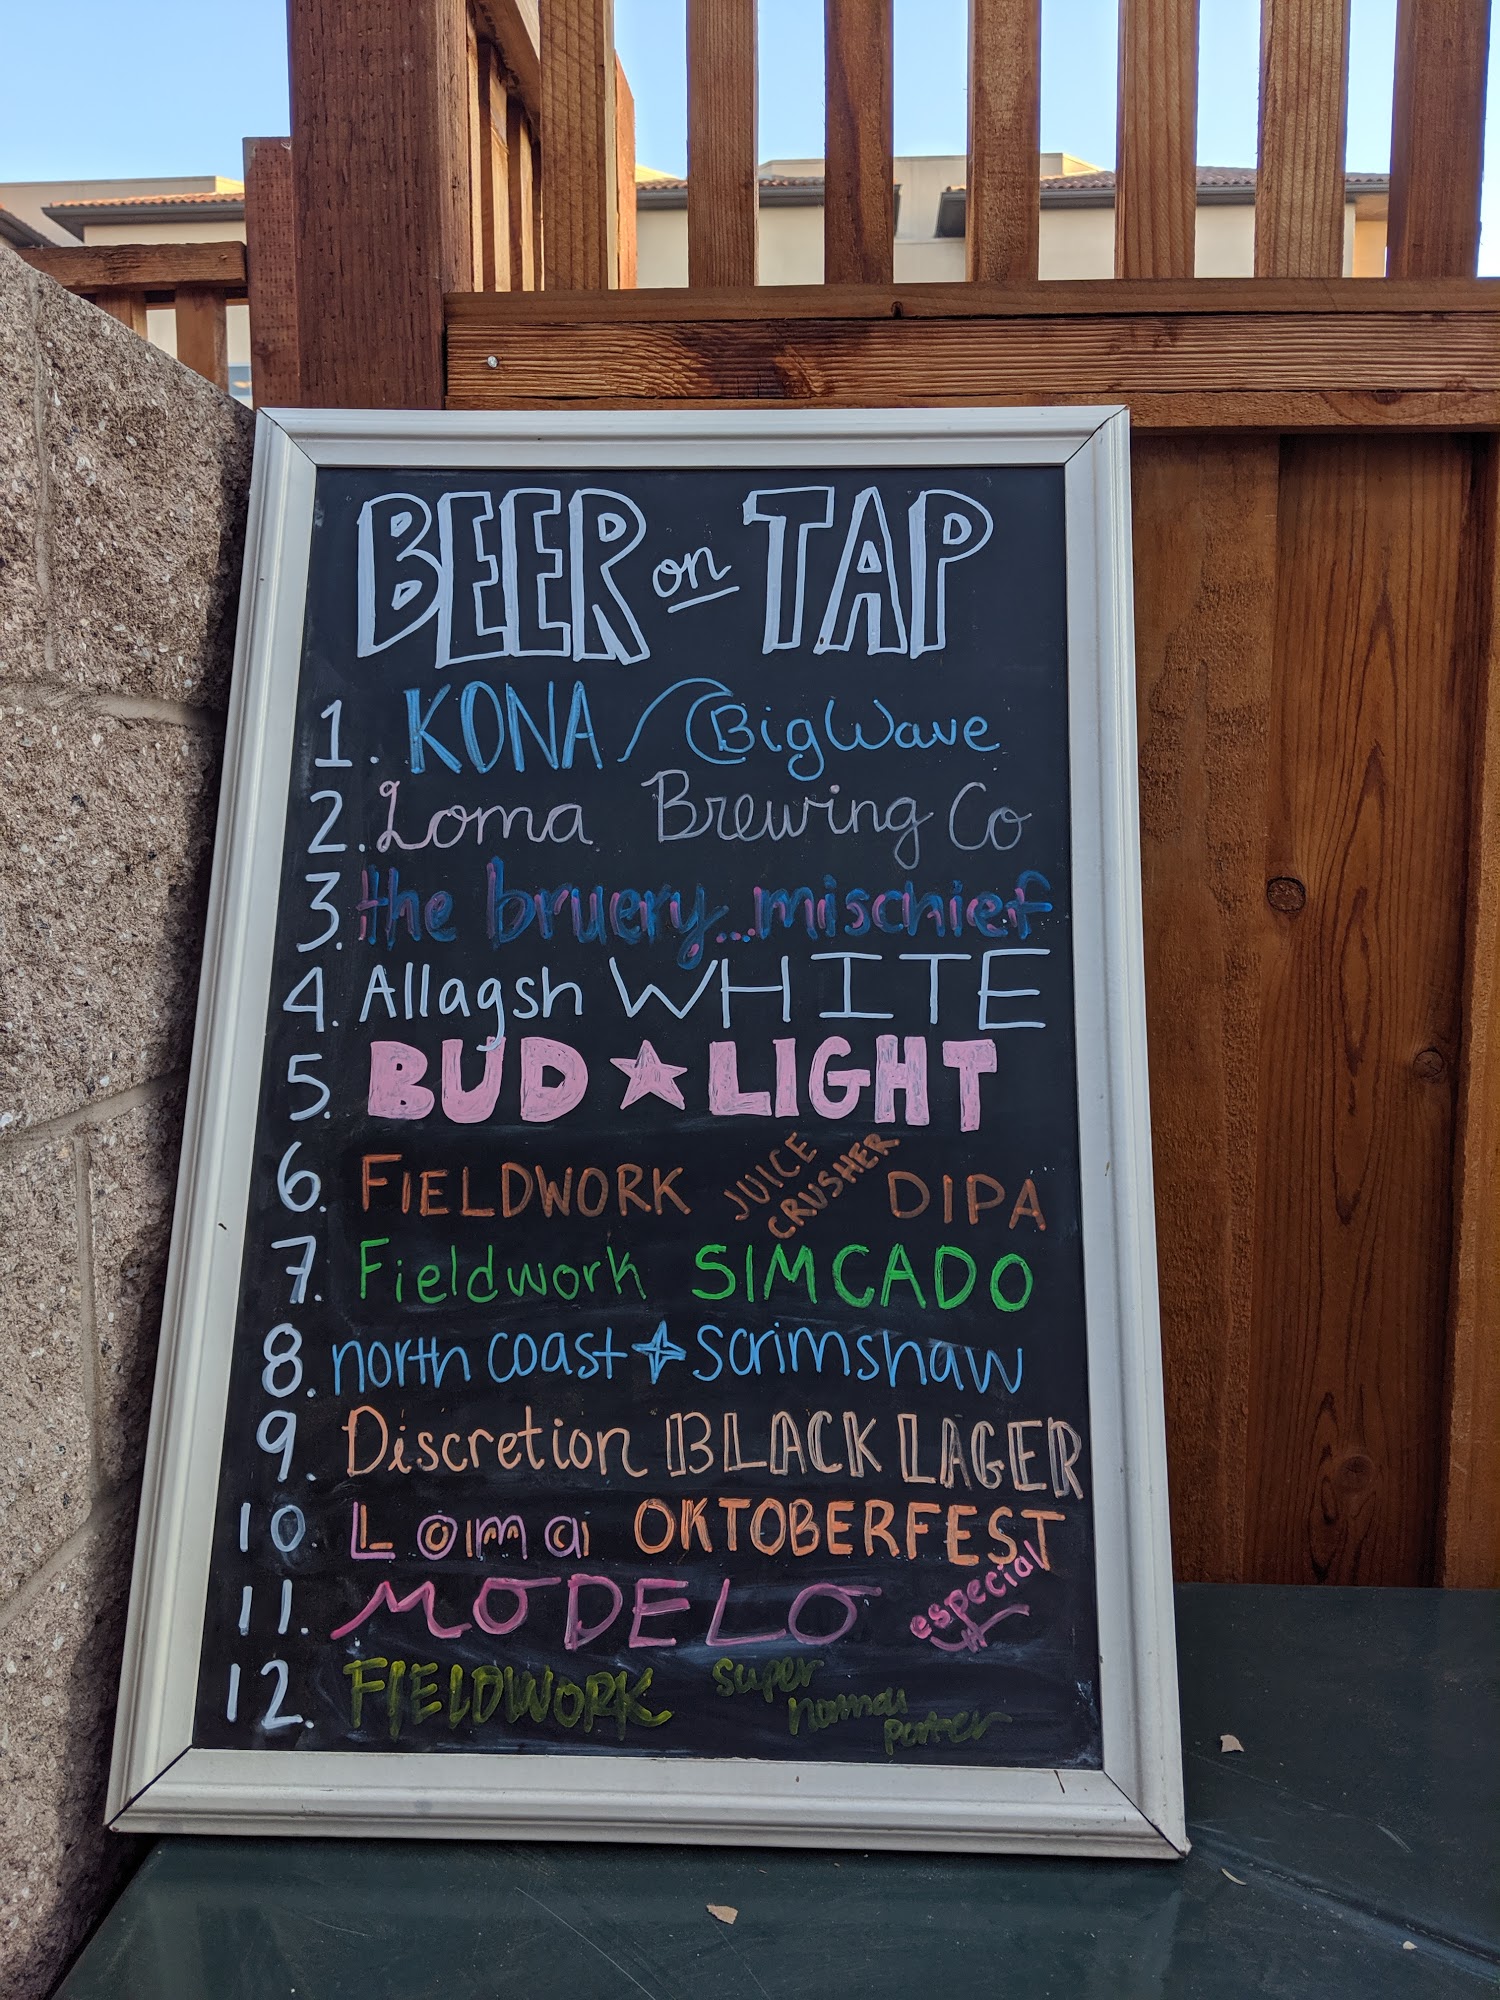 BEER on TAP
1. KONA Big Wave
2. Loma Brewing Co
3. the bruery... mischief
4. Allagsh WHITE
5. BUD LIGHT
6. FIELDWORK JUICE CRUSHER DIPA
7. Fieldwork SIMCADO
8. north coast scrimshaw
9. Discretion BLACK LAGER
10. Loma OKTOBERFEST
11. MODELO especial
12. FIELDWORK super normal porter